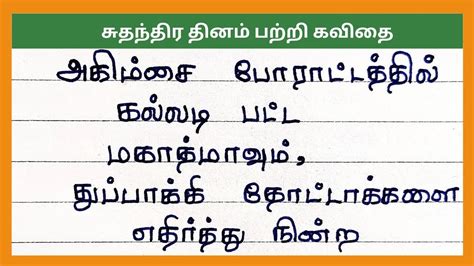 சுதந்திர தினம் பற்றி கவிதை
அகிம்சை போராட்டத்தில்
கல்லடி பட்ட
மகாத்மாவும்,
துப்பாக்கி தோட்டாக்களை
எதிர்த்து நின்ற